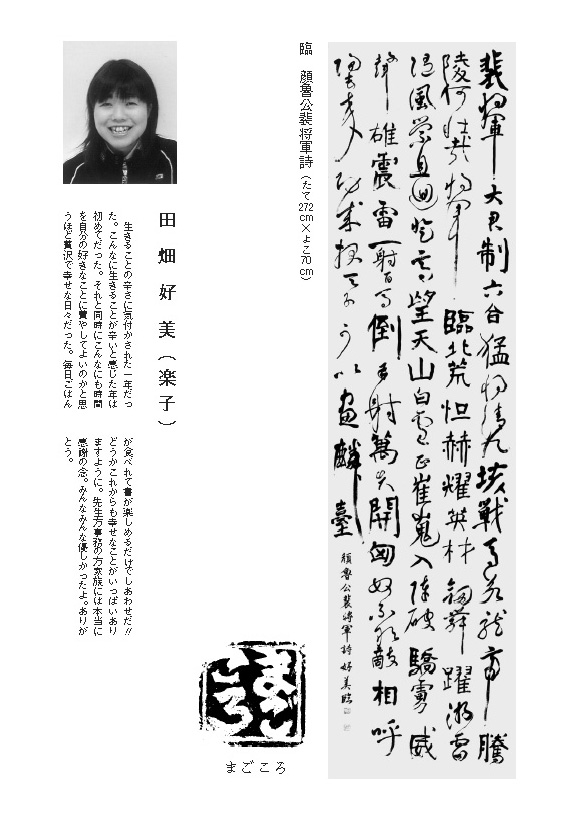 裴将軍大君制六合猛将清九垓戦馬若龍虎騰
陵何壮哉将軍臨北荒恒赫耀英材劔舞躍游雷
随風縈且迴登高望天山白雲正崔嵬入陣破驕虜威
聲雄震雷一射百馬倒再射萬夫開匈奴不敢敵相呼
歸去来功成報天子可以畫麟臺
顔魯公裴将軍詩 好美臨
臨 顔魯公裴将軍詩（たて272cm×よこ70cm）
まごころ
まごころ
田畑好美（楽子）
生きることの辛さに気付かされた一年だっ
た。こんなに生きることが辛いと感じた年は
初めてだった。それと同時にこんなにも時間
を自分の好きなことに費やしてよいのかと思
うほど贅沢で幸せな日々だった。毎日ごはん
が食べれて書が楽しめるだけでしあわせだ!!
どうかこれからも幸せなことがいっぱいあり
ますように。先生方事務の方家族には本当に
感謝の念。みんなみんな優しかったよ。ありが
とう。